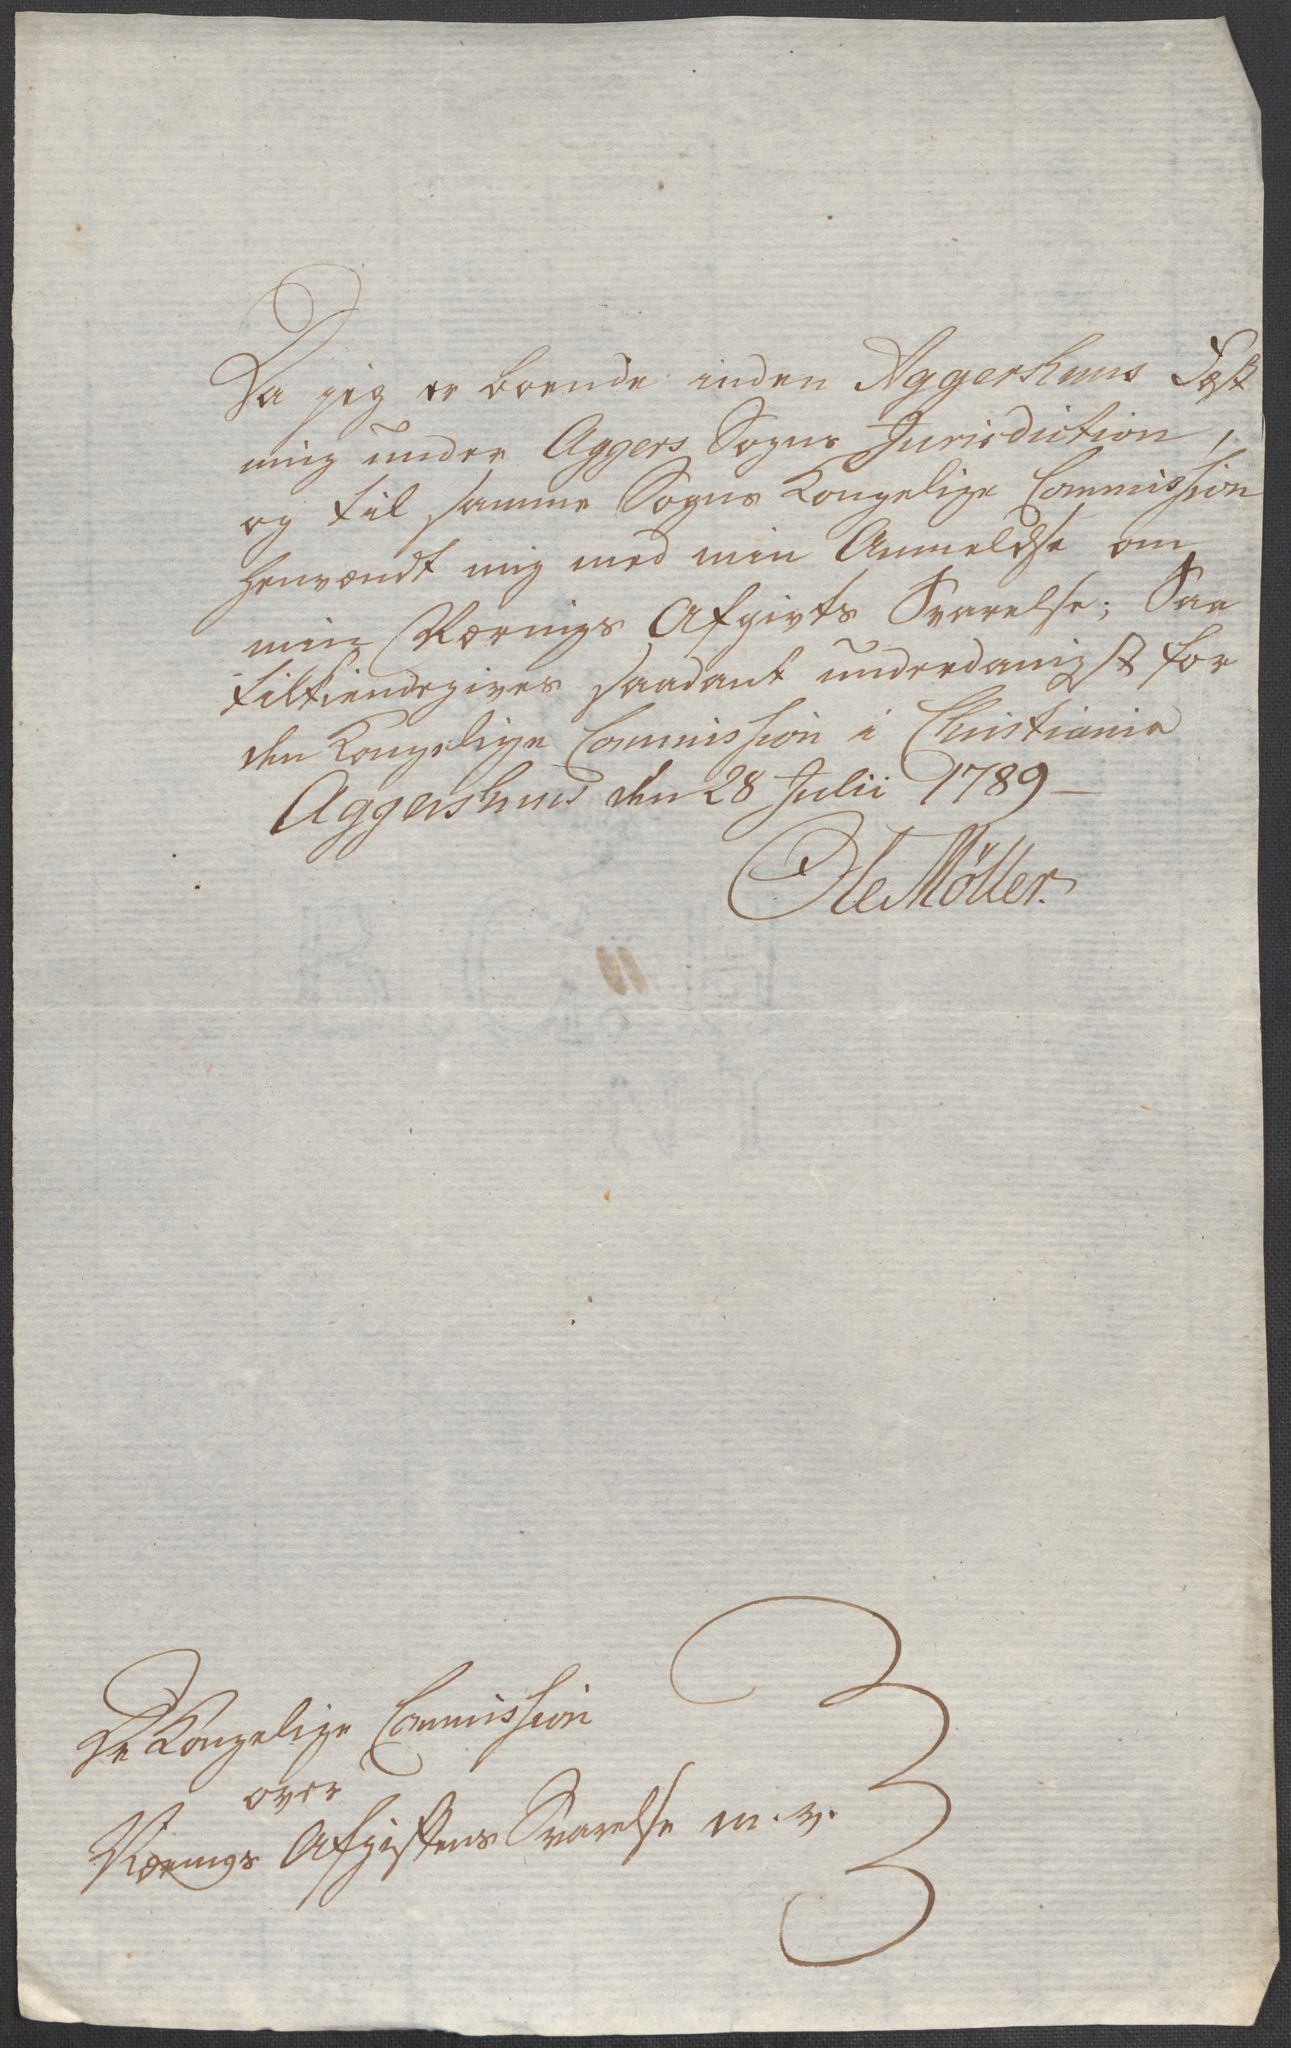 Da jeg er boende inden Aggershuus Fæst
ning under Aggers Sogns Jurisdiction,
og til samme Sogns Kongelige Commission
henvendt mig med min Anmeldse om
min Nærings Afgivts Svarelse; Saa
tilkiendegives saadant underdanigst for
den Kongelige Commission i Christiania
Aggershuus den 28 Julii 1789
Ole Möller.
De Kongelige Commission
over
Nærings Afgiftens Svarelse m. v.